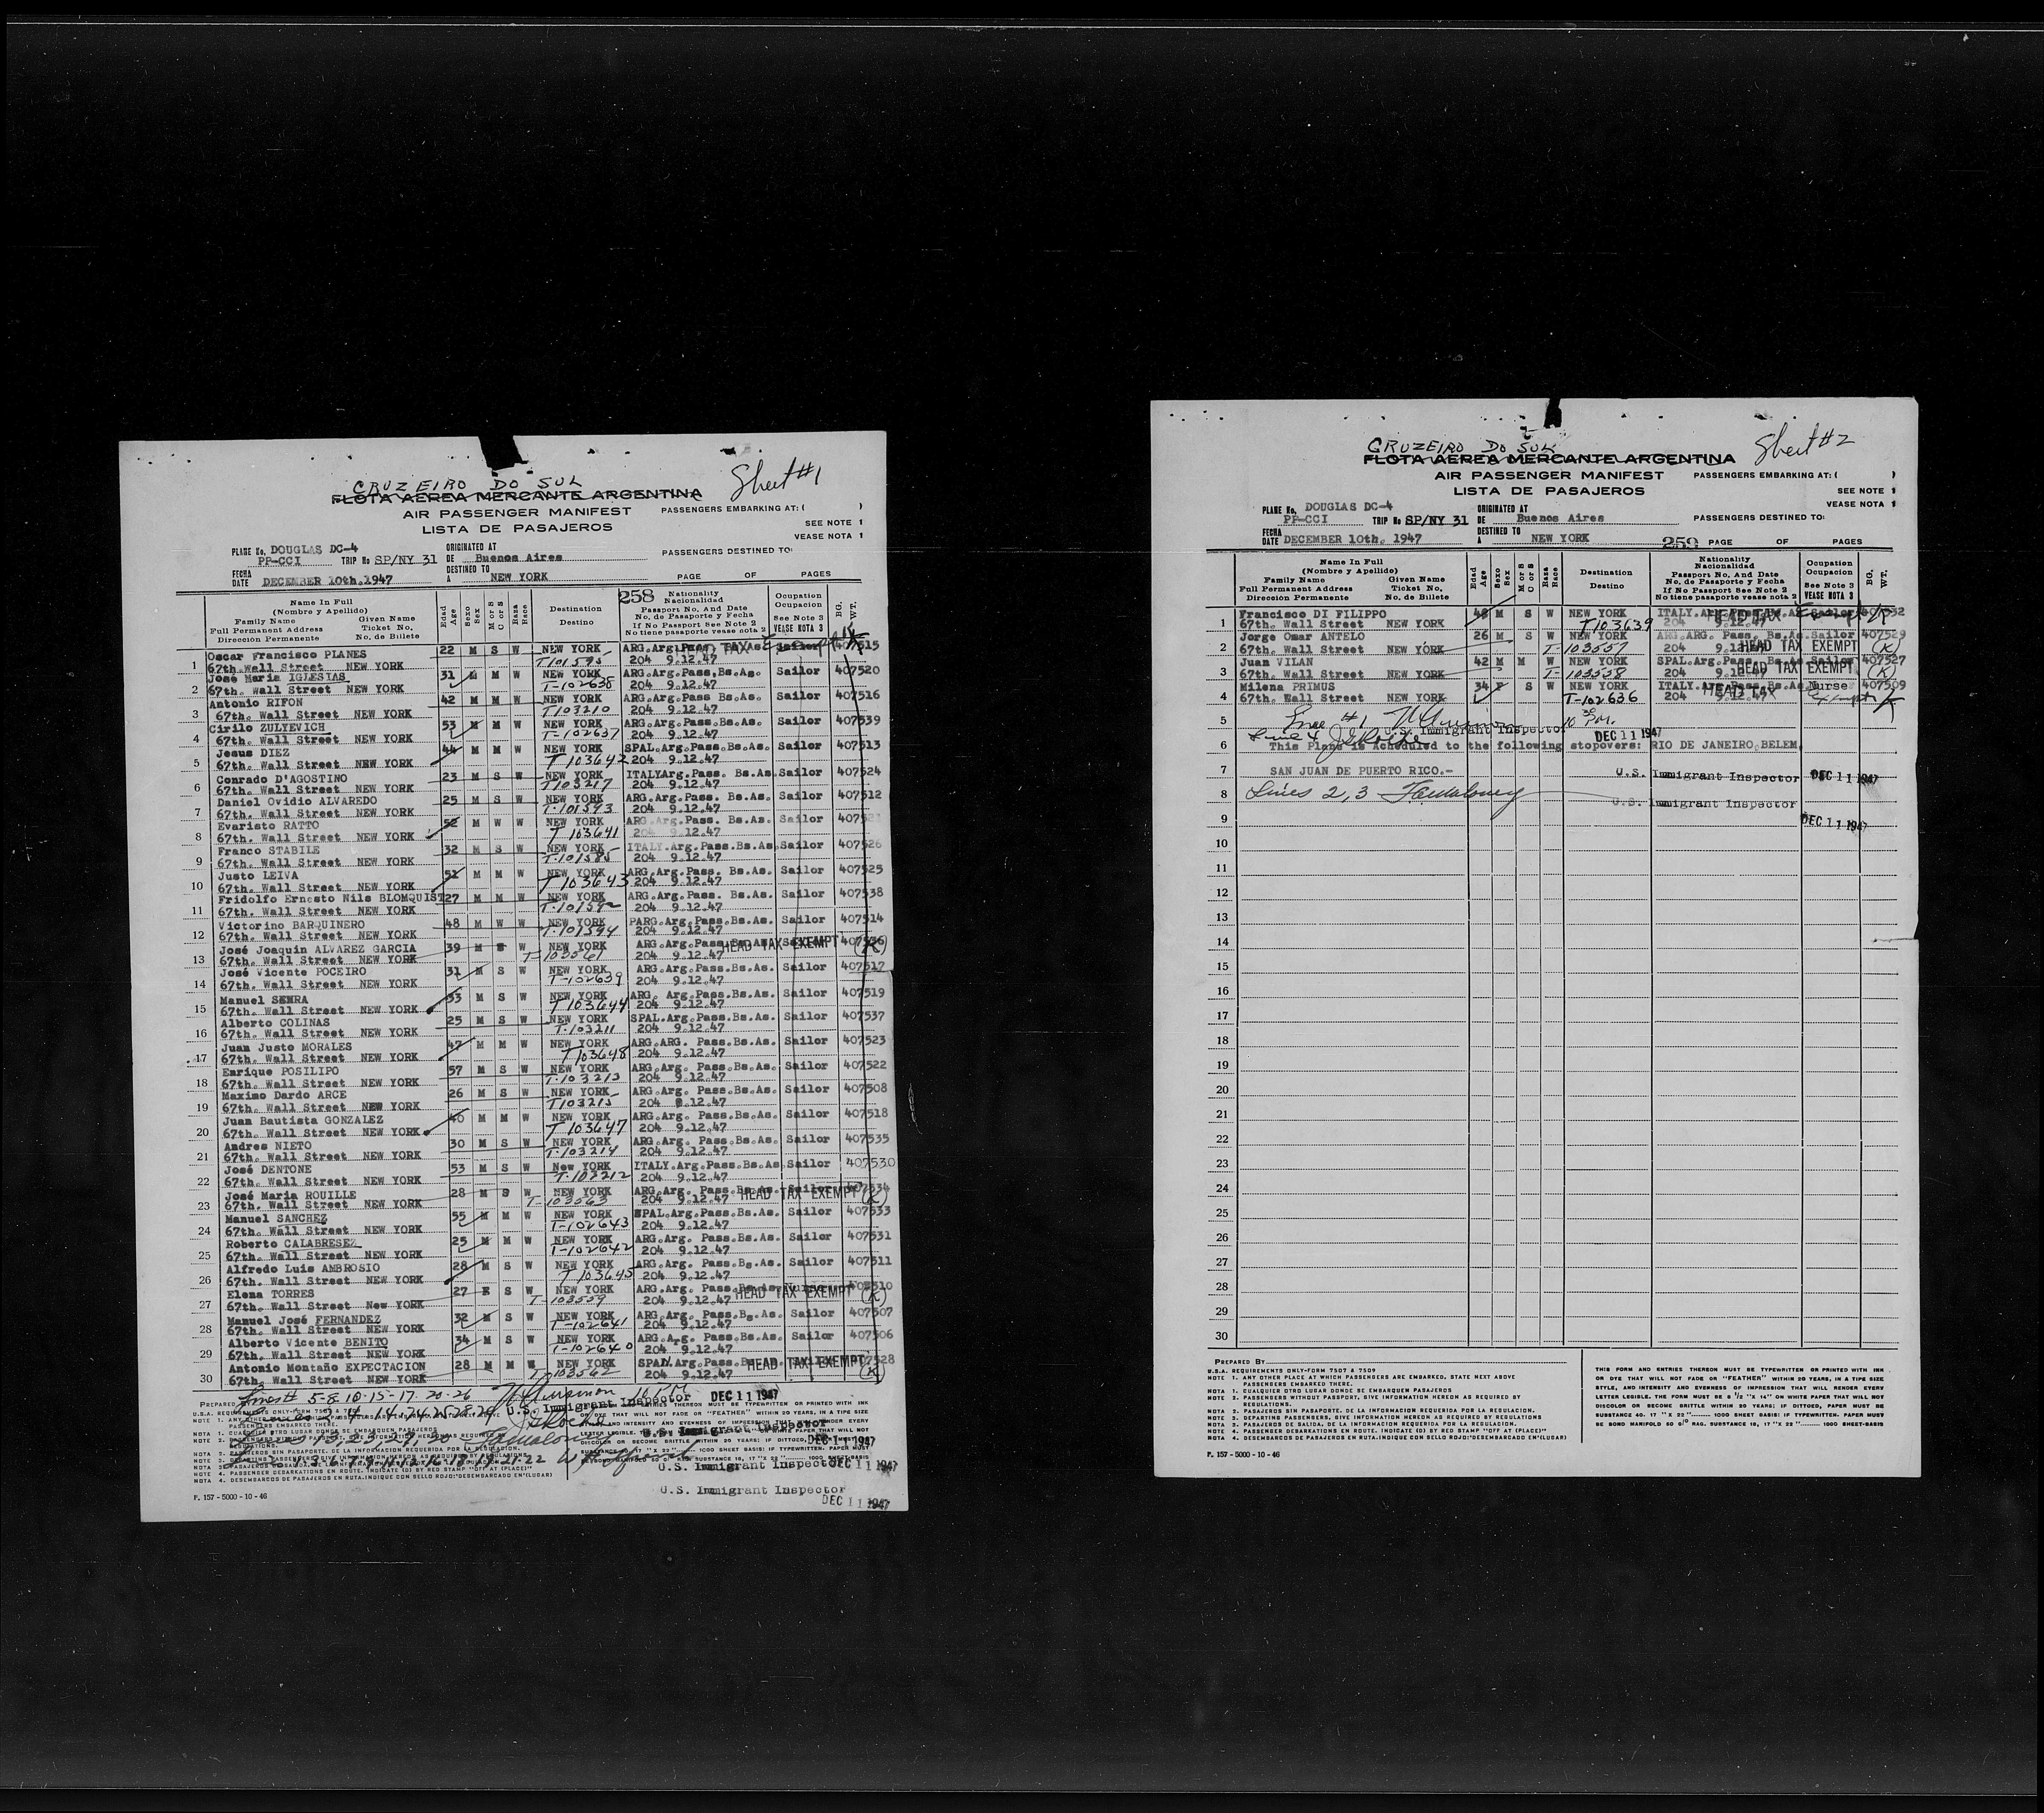 CRUZEIRO DO SUL
FLOTA AEREA MERCANTE ARGENTINA
Sheet #1
AIR PASSENGER MANIFEST
LISTA DE PASAJEROS
PASSENGERS EMBARKING AT: ( )
SEE NOTE 1
VEASE NOTA 1
PLANE No. DOUGLAS DC-4
PP-CCI TRIP No SP/NY 31
ORIGINATED AT
DE Buenos Aires
PASSENGERS DESTINED TO:
FECHA
DATE DECEMBER 10th.1947
DESTINED TO
A NEW YORK
PAGE OF PAGES
258
Name In Full
(Nombre y Apellido)
Family Name Given Name
Full Permanent Address Ticket No.
Dirección Permanente No. de Billete
Edad Age
Sexo Sex
M or S C or S
Raza Race
Destination
Destino
Nationality
Nacionalidad
Passport No. And Date
No. de Pasaporte y Fecha
If No Passport See Note 2
No tiene pasaporte vease nota 2
Occupation
Ocupacion
See Note 3
VEASE NOTA 3
BG. WT.
Oscar Francisco PLANES 22 M S W NEW YORK ARG.Arg.Pass Bs.As. Sailor 407515
1 67th.Wall Street NEW YORK T101595 204 9.12.47
José Maria IGLESIAS 31 M M W NEW YORK ARG.Arg.Pass.Bs.As. Sailor 407520
2 67th. Wall Street NEW YORK T-102638 204 9.12.47
Antonio RIFON 42 M M W NEW YORK ARG.Arg.Pass Bs.As. Sailor 407516
3 67th. Wall Street NEW YORK T103210 204 9.12.47
Cirilo ZULYEVICH 53 M M W NEW YORK ARG.Arg.Pass.Bs.As. Sailor 407539
4 67th. Wall Street NEW YORK T-102637 204 9.12.47
Jesus DIEZ 44 M M W NEW YORK SPAL.Arg.Pass.Bs.As. Sailor 407513
5 67th. Wall Street NEW YORK T 103642 204 9.12.47
Conrado D'AGOSTINO 23 M S W NEW YORK ITALYArg.Pass. Bs.As. Sailor 407524
6 67th. Wall Street NEW YORK T103217 204 9.12.47
Daniel Ovidio ALVAREDO 25 M S W NEW YORK ARG.Arg.Pass. Bs.As. Sailor 407512
7 67th. Wall Street NEW YORK T-101593 204 9.12.47
Evaristo RATTO 52 M W W NEW YORK ARG.Arg.Pass. Bs.As. Sailor
8 67th. Wall Street NEW YORK T 103641 204 9.12.47
Franco STABILE 32 M S W NEW YORK ITALY.Arg.Pass. Bs.As. Sailor 407526
9 67th. Wall Street NEW YORK T-101585 204 9.12.47
Justo LEIVA 51 M M W NEW YORK ARG.Arg.Pass. Bs.As. Sailor 407525
10 67th. Wall Street NEW YORK T 103643 204 9.12.47
Fridolfo Ernesto Nils BLOMQUIST 27 M M W NEW YORK ARG.Arg.Pass. Bs.As. Sailor 407538
11 67th. Wall Street NEW YORK T-101592 204 9.12.47
Victorino BARQUINERO 48 M W W NEW YORK PARG.Arg.Pass.Bs.As. Sailor 407514
12 67th. Wall Street NEW YORK T-101594 204 9.12.47
José Joaquin ALVAREZ GARCIA 39 M S W NEW YORK ARG.Arg.Pass.Bs.As. HEAD TAX EXEMPT 407536 (K)
13 67th. Wall Street NEW YORK T-103561 204 9.12.47
José Vicente POCEIRO 31 M S W NEW YORK ARG.Arg.Pass.Bs.As. Sailor 407517
14 67th. Wall Street NEW YORK T-102639 204 9.12.47
Manuel SERRA 33 M S W NEW YORK ARG. Arg.Pass.Bs.As. Sailor 407519
15 67th. Wall Street NEW YORK T 103644 204 9.12.47
Alberto COLINAS 25 M S W NEW YORK SPAL.Arg.Pass.Bs.As. Sailor 407537
16 67th. Wall Street NEW YORK T-103211 204 9.12.47
Juan Justo MORALES 47 M M W NEW YORK ARG.ARG. Pass.Bs.As. Sailor 407523
17 67th. Wall Street NEW YORK T103648 204 9.12.47
Enrique POSILIPO 57 M S W NEW YORK ARG.Arg. Pass.Bs.As. Sailor 407522
18 67th. Wall Street NEW YORK T-103213 204 9.12.47
Maximo Dardo ARCE 26 M S W NEW YORK ARG.Arg. Pass.Bs.As. Sailor 407508
19 67th. Wall Street NEW YORK T103215 204 9.12.47
Juan Bautista GONZALEZ 40 M M W NEW YORK ARG.Arg. Pass.Bs.As. Sailor 407518
20 67th. Wall Street NEW YORK T 103647 204 9.12.47
Andres NIETO 30 M S W NEW YORK ARG.Arg. Pass.Bs.As. Sailor 407535
21 67th. Wall Street NEW YORK T-103214 204 9.12.47
José DENTONE 53 M S W New YORK ITALY.Arg.Pass.Bs.As. Sailor 407530
22 67th. Wall Street NEW YORK T-103212 204 9.12.47
José Maria ROUILLE 28 M S W NEW YORK ARG.Arg. Pass.Bs.As. Sailor 407534
23 67th. Wall Street NEW YORK T-103563 204 9.12.47 HEAD TAX EXEMPT (K)
Manuel SANCHEZ 55 M M W NEW YORK SPAL.Arg.Pass.Bs.As. Sailor 407533
24 67th. Wall Street NEW YORK T-102643 204 9.12.47
Roberto CALABRESEZ 25 M M W NEW YORK ARG.Arg. Pass.Bs.As. Sailor 407531
25 67th. Wall Street NEW YORK T-102642 204 9.12.47
Alfredo Luis AMBROSIO 28 M S W NEW YORK ARG.Arg. Pass.Bs.As. Sailor 407511
26 67th. Wall Street NEW YORK T 103645 204 9.12.47
Elena TORRES 27 F S W NEW YORK ARG.Arg. Pass.Bs.As.
27 67th. Wall Street New YORK T-103559 204 9.12.47 HEAD TAX EXEMPT (K)
Manuel José FERNANDEZ 32 M S W NEW YORK ARG.Arg. Pass.Bs.As. Sailor 407507
28 67th. Wall Street NEW YORK T-102641 204 9.12.47
Alberto Vicente BENITO 34 M S W NEW YORK ARG.Arg. Pass.Bs.As. Sailor 407506
29 67th. Wall Street NEW YORK T-102640 204 9.12.47
Antonio Montaño EXPECTACION 28 M M W NEW YORK SPAL.Arg.Pass. HEAD TAX EXEMPT
30 67th. Wall Street NEW YORK T-103562 204 9.12.47 (K)
Lines# 5-8-10-15-17-20-26 10 PM DEC 11 1947
U.S. Immigrant Inspector
DEC 11 1947
U.S. Immigrant Inspector DEC 11 1947
U.S. Immigrant Inspector
DEC 11 1947
NOTA 4. DESEMBARCOS DE PASAJEROS EN RUTA.INDIQUE CON SELLO ROJO:"DESEMBARCADO EN"(LUGAR)
F. 157-5000-10-46
CRUZEIRO DO SUL
FLOTA AEREA MERCANTE ARGENTINA
Sheet #2
AIR PASSENGER MANIFEST
LISTA DE PASAJEROS
PASSENGERS EMBARKING AT: ( )
SEE NOTE 1
VEASE NOTA 1
PLANE No. DOUGLAS DC-4
PP-CCI TRIP No SP/NY 31
ORIGINATED AT
DE Buenos Aires
PASSENGERS DESTINED TO:
FECHA
DATE DECEMBER 10th. 1947
DESTINED TO
A NEW YORK
259 PAGE OF PAGES
Name In Full
(Nombre y Apellido)
Family Name Given Name
Full Permanent Address Ticket No.
Dirección Permanente No. de Billete
Edad Age
Sexo Sex
M or S C or S
Raza Race
Destination
Destino
Nationality
Nacionalidad
Passport No. And Date
No. de Pasaporte y Fecha
If No Passport See Note 2
No tiene pasaporte vease nota 2
Occupation
Ocupacion
See Note 3
VEASE NOTA 3
BG. WT.
Francisco DI FILIPPO 48 M S W NEW YORK ITALY.Arg.Pass.Bs.As. Sailor 407532
1 67th. Wall Street NEW YORK T103639 204 9.12.47
Jorge Omar ANTELO 26 M S W NEW YORK ARG.ARG. Pass. Bs.As. Sailor 407529
2 67th. Wall Street NEW YORK T-103557 204 9.12.47 HEAD TAX EXEMPT (K)
Juan VILAN 42 M M W NEW YORK SPAL.Arg.Pass. Bs.As. Sailor 407527
3 67th. Wall Street NEW YORK T-103558 204 9.12.47 HEAD TAX EXEMPT (K)
Milena PRIMUS 34 F S W NEW YORK ITALY.Arg.Pass.Bs.As. Nurse 407509
4 67th. Wall Street NEW YORK T-102636 204 9.12.47 HEAD TAX Exempt K
5 Line #1 10 30 PM.
U.S. Immigrant Inspector DEC 11 1947
Line 4
6 This Plane is Acheduled to the following stopovers: RIO DE JANEIRO,BELEM,
7 SAN JUAN DE PUERTO RICO.- U.S. Immigrant Inspector DEC 11 1947
8 Lines 2,3 U.S. Immigrant Inspector
9 DEC 11 1947
10
11
12
13
14
15
16
17
18
19
20
21
22
23
24
25
26
27
28
29
30
PREPARED BY
U.S.A. REQUIREMENTS ONLY-FORM 7507 & 7509
NOTE 1. ANY OTHER PLACE AT WHICH PASSENGERS ARE EMBARKED, STATE NEXT ABOVE
PASSENGERS EMBARKED THERE.
NOTA 1. CUALQUIER OTRO LUGAR DONDE SE EMBARQUEN PASAJEROS
NOTE 2. PASSENGERS WITHOUT PASSPORT, GIVE INFORMATION HEREON AS REQUIRED BY
REGULATIONS.
NOTA 2. PASAJEROS SIN PASAPORTE. DE LA INFORMACION REQUERIDA POR LA REGULACION.
NOTE 3. DEPARTING PASSENGERS, GIVE INFORMATION HEREON AS REQUIRED BY REGULATIONS
NOTA 3. PASAJEROS DE SALIDA, DE LA INFORMACION REQUERIDA POR LA REGULACION.
NOTE 4. PASSENGER DEBARKATIONS EN ROUTE. INDICATE (D) BY RED STAMP "OFF AT (PLACE)"
NOTA 4. DESEMBARCOS DE PASAJEROS EN RUTA.INDIQUE CON SELLO ROJO:"DESEMBARCADO EN"(LUGAR)
THIS FORM AND ENTRIES THEREON MUST BE TYPEWRITTEN OR PRINTED WITH INK
OR DYE THAT WILL NOT FADE OR "FEATHER" WITHIN 20 YEARS, IN A TIPE SIZE
STYLE, AND INTENSITY AND EVENESS OF IMPRESSION THAT WILL RENDER EVERY
LETTER LEGIBLE. THE FORM MUST BE 8 1/2 "X 14" ON WHITE PAPER THAT WILL NOT
DISCOLOR OR BECOME BRITTLE WITHIN 20 YEARS; IF DITTOED, PAPER MUST BE
SUBSTANCE 40. 17 "X 22" 1000 SHEET BASIS: IF TYPEWRITTEN. PAPER MUST
BE BOND MANIFOLD 50 % RAG. SUBSTANCE 18, 17 "X 22" 1000 SHEET-BASIS
F. 157-5000-10-46